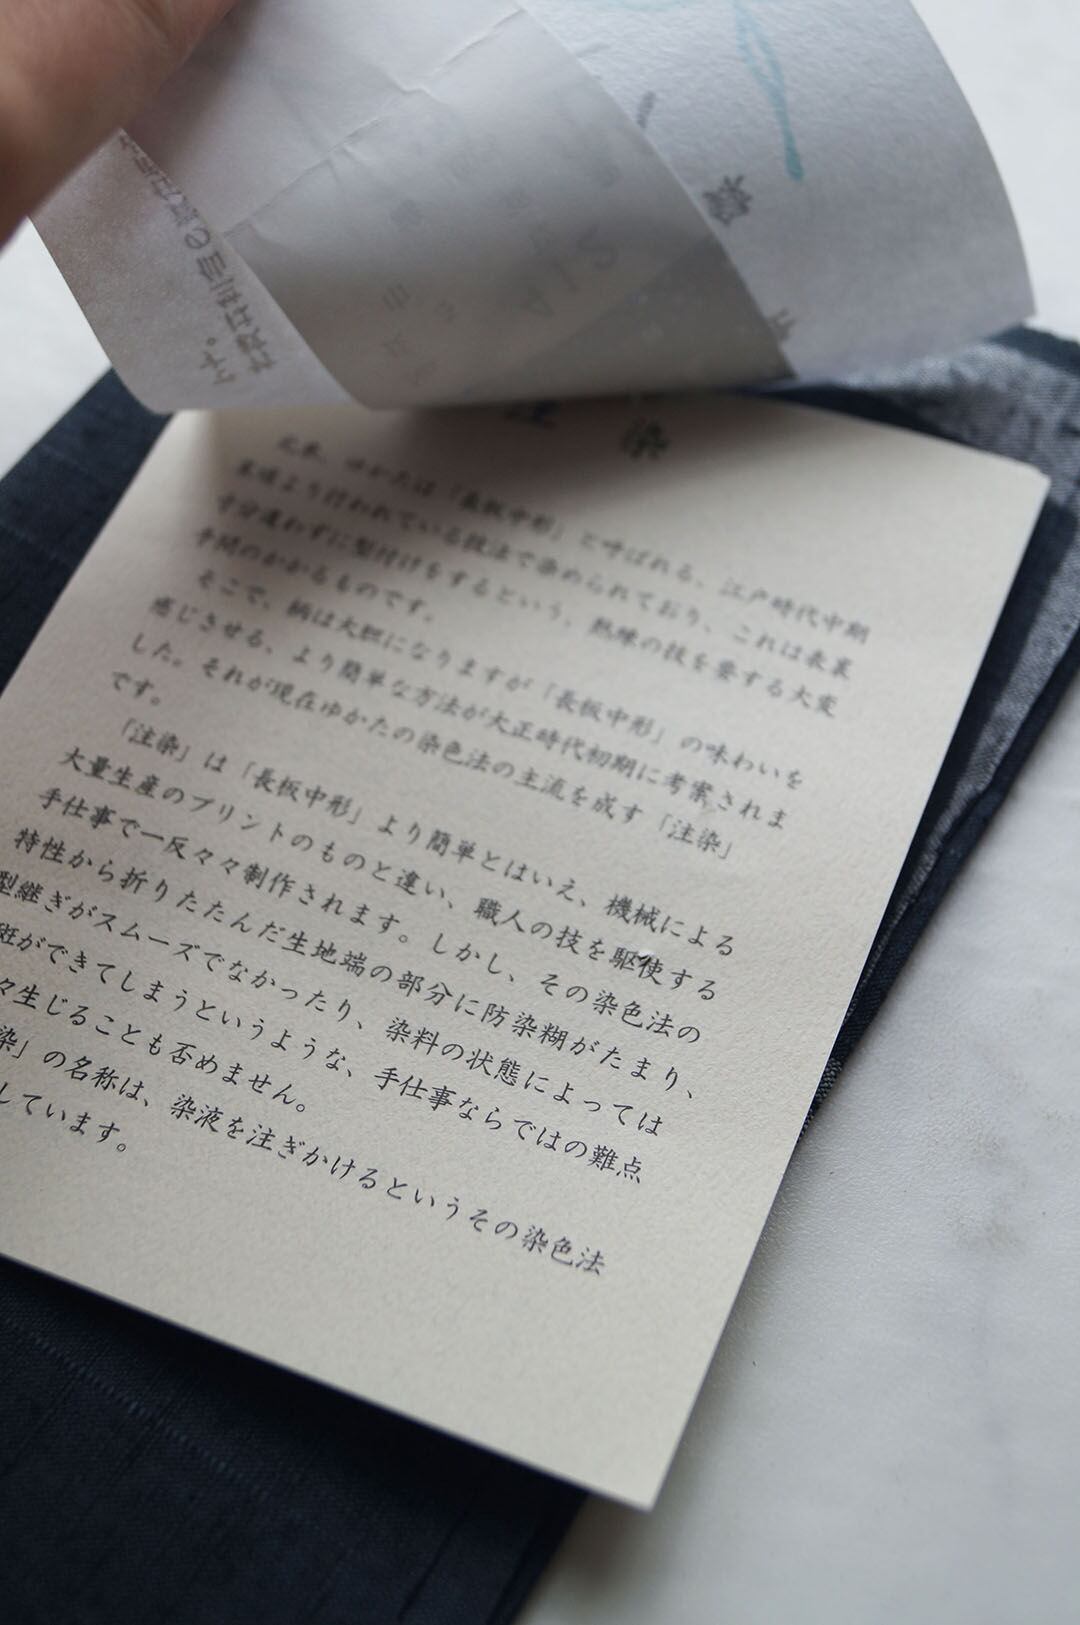 注 染
元来、ゆかたは「長板中形」と呼ばれる、江戸時代中期
末頃より行われている技法で染められており、これは表裏
寸分違わずに型付けをするという、熟練の技を要する大変
手間のかかるものです。
そこで、柄は大胆になりますが「長板中形」の味わいを
感じさせる、より簡単な方法が大正時代初期に考案されま
した。それが現在ゆかたの染色法の主流を成す「注染」
です。
「注染」は「長板中形」より簡単とはいえ、機械による
大量生産のプリントのものと違い、職人の技を駆使する
手仕事で一反々々制作されます。しかし、その染色法の
特性から折りたたんだ生地端の部分に防染糊がたまり、
型継ぎがスムーズでなかったり、染料の状態によっては
斑ができてしまうというような、手仕事ならではの難点
々生じることも否めません。
染」の名称は、染液を注ぎかけるというその染色法
しています。